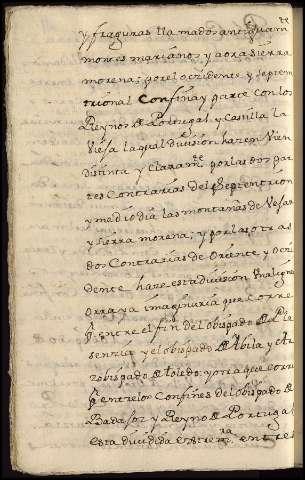 y fraguras llamados antiguam te
montes marianos y aora sierra
morena; por el occidente y septem
trional Confina y parte con los
Reynos de Portugal y Castilla la
Vieja la qual division hazen Vien
distinta y Claram.te por las dos par
tes Contrarias del septentrion
y mediodia las montañas de Vejar
y sierra morena; y por las otras
dos Contrarias de Oriente y occi
dente haze esta division Una ligne
o rraya imaginaria que corre
p.r entre el fin del obispado de Pla
sencia y el obispado de Abila y Ar
zobispado de toledo y otra que corre
p.r entre los Confines del obispado de
Badajoz y Reyno de Portugal
esta dividida estrem.ra entre